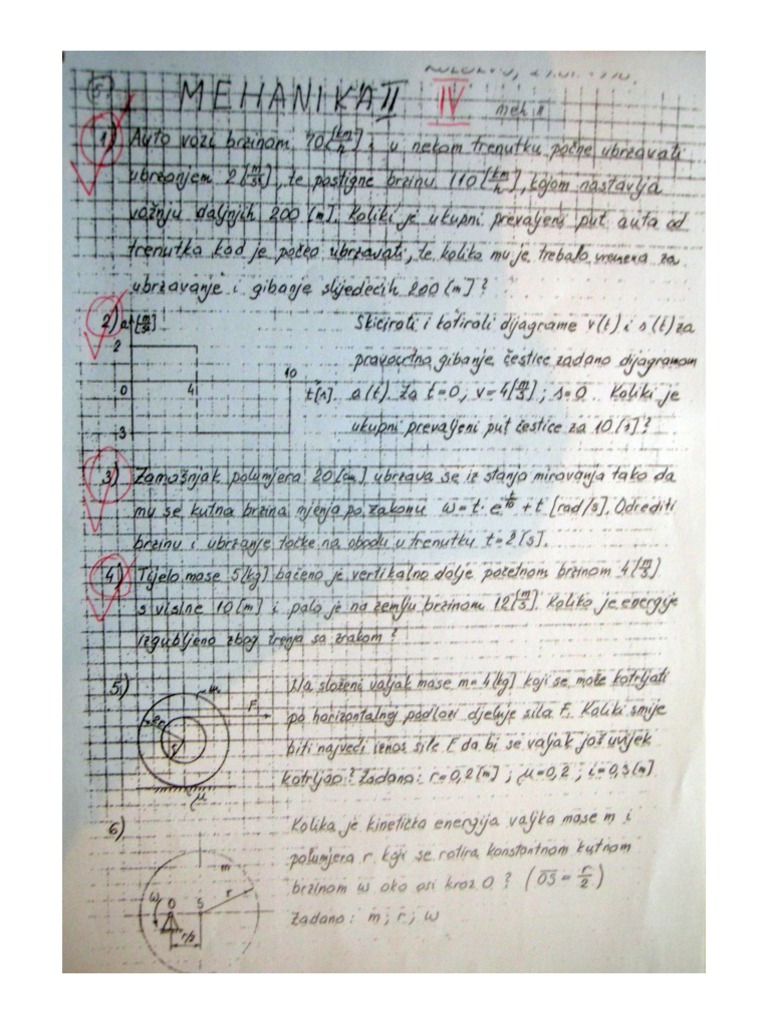 5.
MEHANIKA II IV meh II
1) Auto vozi brzinom 70 [km/h] i u nekom trenutku počne ubrzavati
ubrzanjem 2 [m/s²], te postigne brzinu 110 [km/h], kojom nastavlja
vožnju daljnjih 200 [m]. Koliki je ukupni prevaljeni put auta od
trenutka kad je počeo ubrzavati, te koliko mu je trebalo vremena za
ubrzavanje i gibanje slijedećih 200 [m]?
2) a [m/s²]
2
0
4
10
t [s]
-3
Skicirati i kotirati dijagrame v(t) i s(t) za
pravocrtno gibanje čestice zadano dijagramom
a(t). Za t=0, v=4 [m/s]; s=0. Koliki je
ukupni prevaljeni put čestice za 10 [s]?
3) Zamašnjak polumjera 20 [cm] ubrzava se iz stanja mirovanja tako da
mu se kutna brzina mjenja po zakonu ω = t·e^(t/10) + t [rad/s]. Odrediti
brzinu i ubrzanje točke na obodu u trenutku t=2 [s].
4) Tijelo mase 5 [kg] bačeno je vertikalno dolje početnom brzinom 4 [m/s]
s visine 10 [m] i palo je na zemlju brzinom 12 [m/s]. Koliko je energije
izgubljeno zbog trenja sa zrakom?
5)
m
F
r
μ
Na složeni valjak mase m=4 [kg] koji se može kotrljati
po horizontalnoj podlozi djeluje sila F. Koliki smije
biti najveći iznos sile F da bi se valjak još uvijek
kotrljao? Zadano: r=0,2 [m]; μ=0,2; i=0,3 [m]
6)
m
r
ω
O
S
r/2
Kolika je kinetička energija valjka mase m i
polumjera r koji se rotira konstantnom kutnom
brzinom ω oko osi kroz O? (OS = r/2)
Zadano: m; r; ω